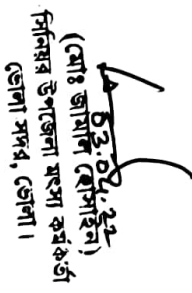 (মোঃ জামাল হোসাইন)
সিনিয়র উপজেলা মৎস্য কর্মকর্তা
ভোলা সদর, ভোলা।